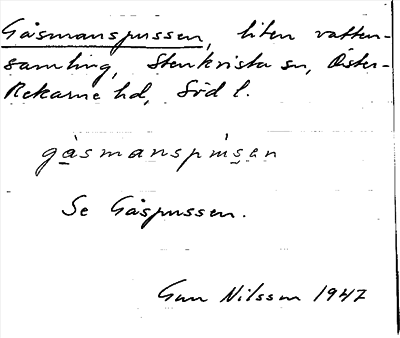 Gåsmanspussen, liten vatten-
samling, Stenkvista sn, Öster-
Rekarne hd, Söd l.
Se Gåspussen.
Gun Nilsson 1947